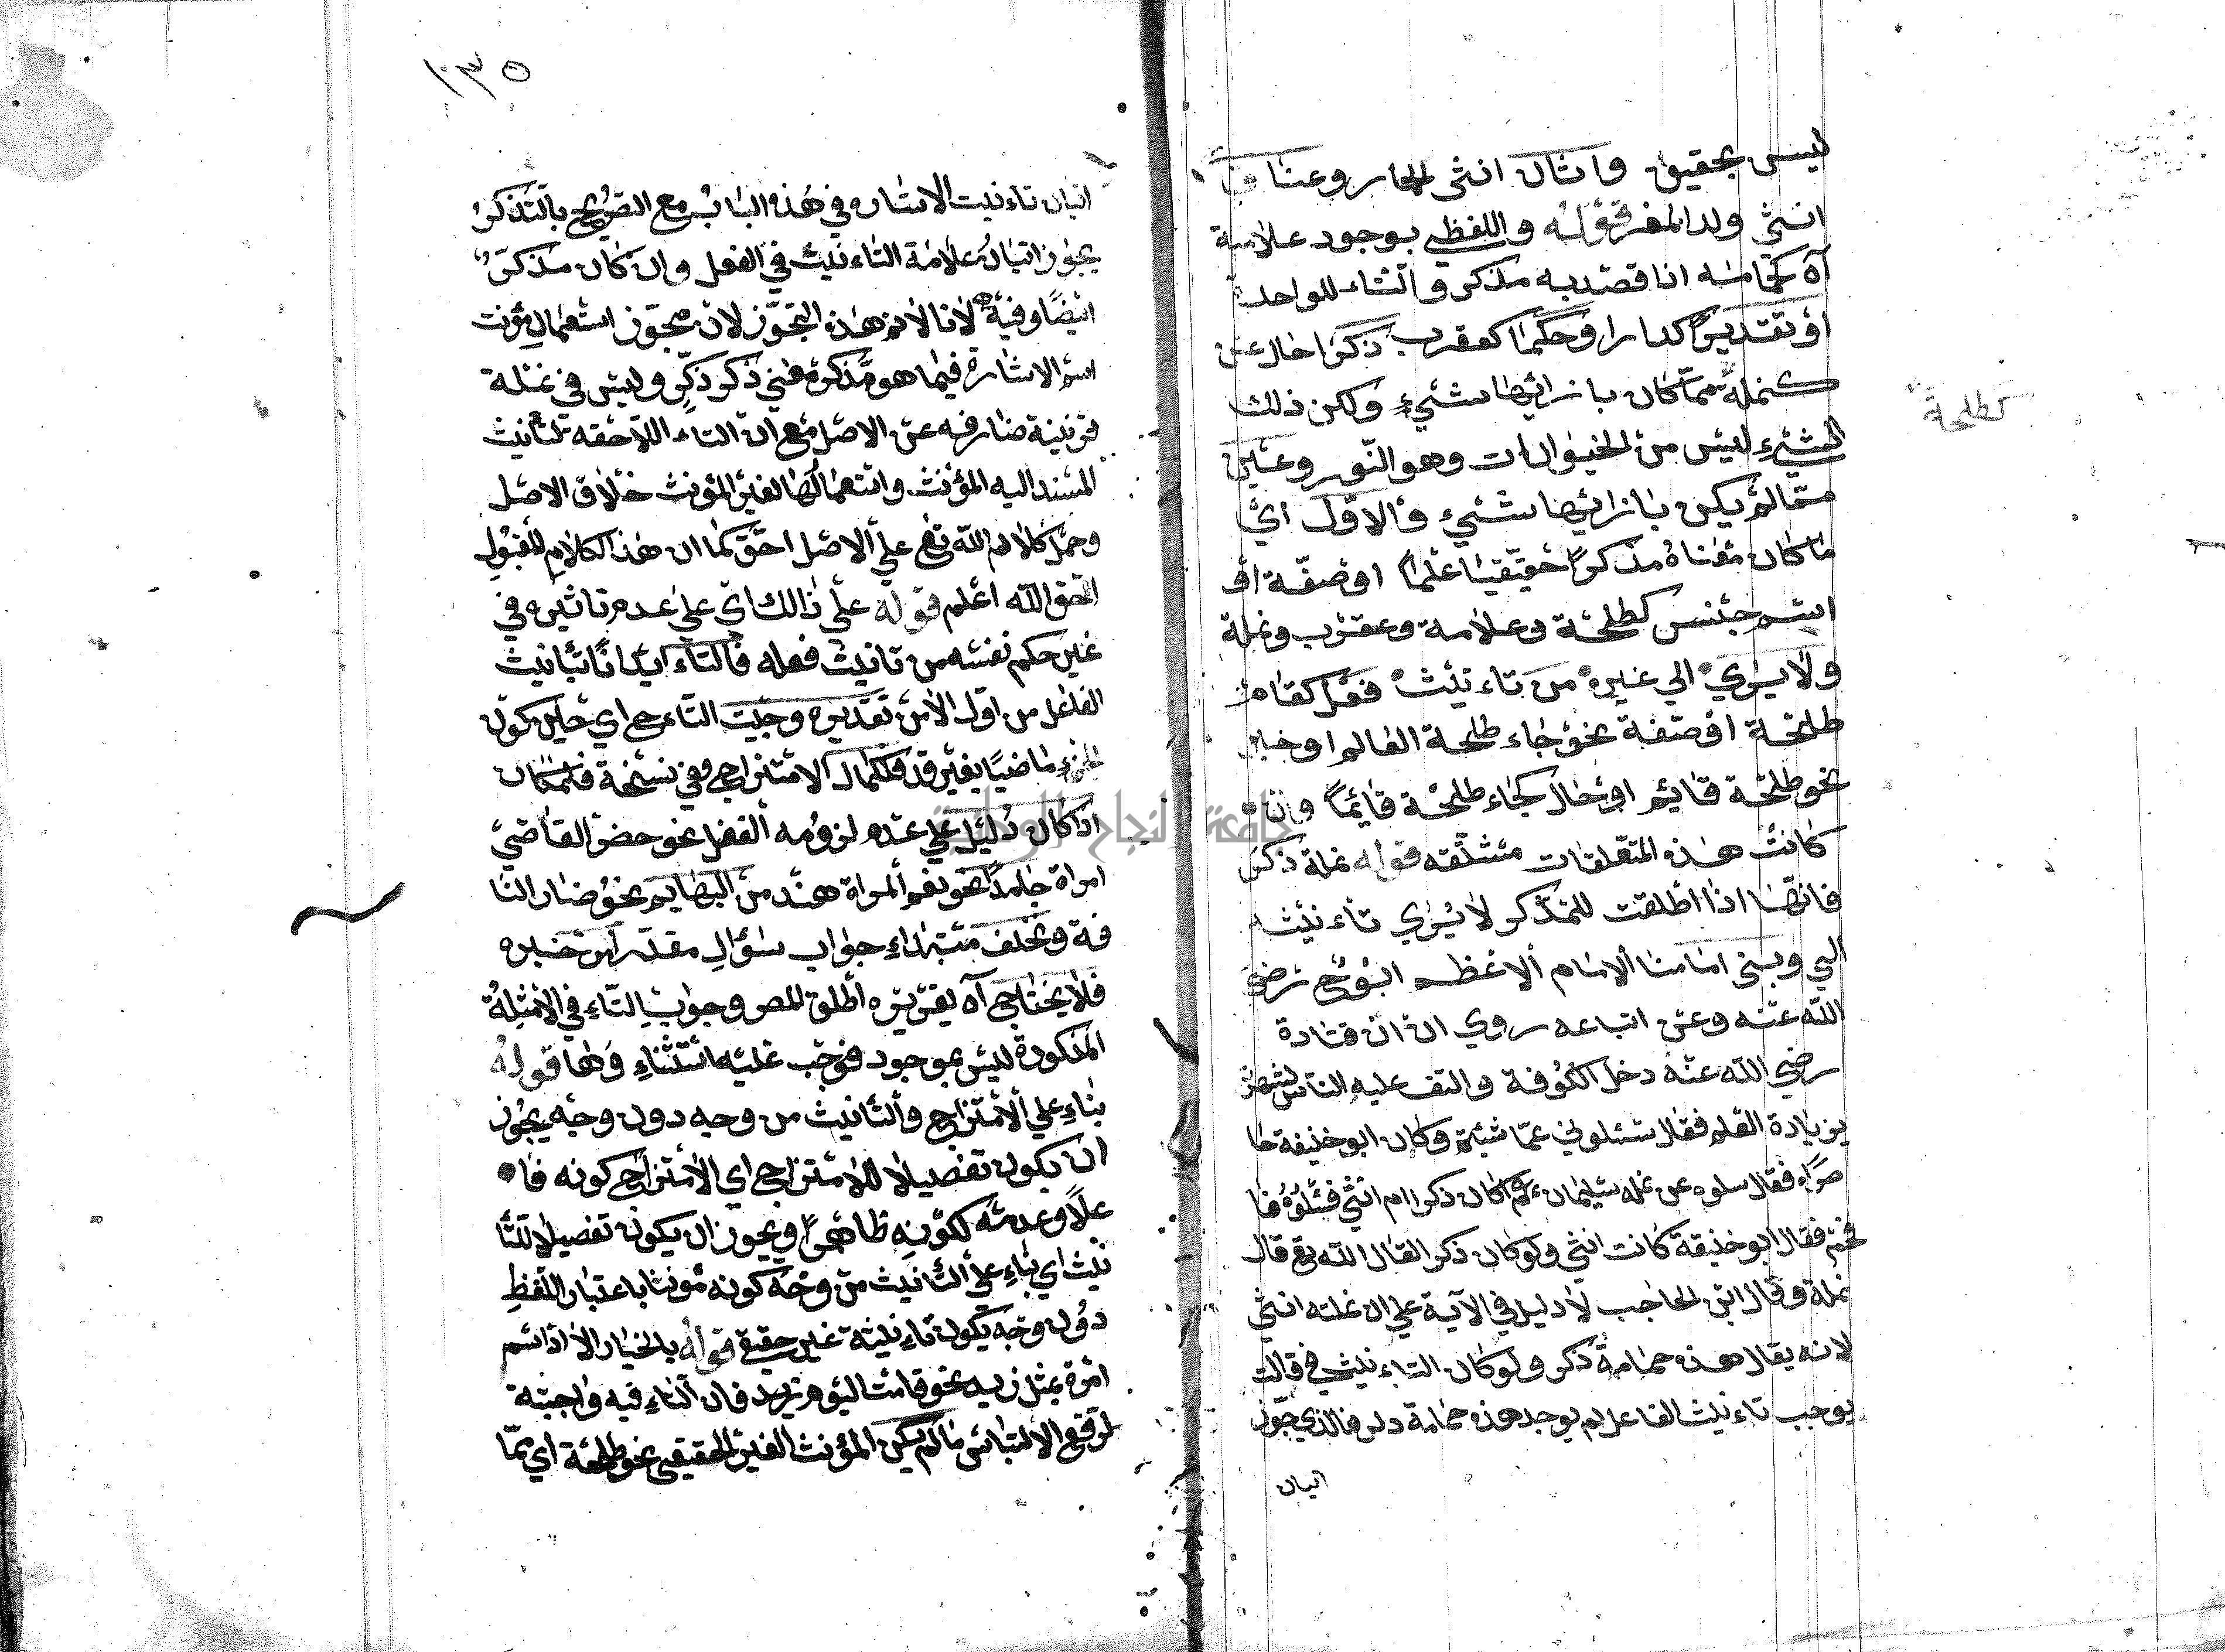 ليس بحقيق واتان انثى الحمار وعناق
انثى ولد المعز قوله واللفظي بوجود علامة
آه كحمامة اذا قصد به مذكر والتاء للواحد
او تقديرًا كدار او حكما كعقرب ذكر احال عن
كنملة مما كان بازائها شيء ولكن ذلك
كطلحة
الشيء ليس من الحيوانات وهو النور وعين
مما لم يكن بازائها شيء والاول اي
ما كان معناه مذكرًا حقيقيا علما او صفة او
اسم جنس كطلحة وعلامة وعقرب ونملة
ولا يسري الى غيره من تاءنيث فعل كقام
طلحة او صفة نحو جاء طلحة العالم او خبر
نحو طلحة قايم او حال كجاء طلحة قائمًا وان
كانت هذه المتعلقات مشتقه قوله نملة ذكر
فانها اذا اطلقت للمذكر لا يسري تاءنيثه
الي وبنى امامنا الامام الاعظم ابوح رضي
الله عنه وعن اتباعه روي ان قتادة
رضي الله عنه دخل الكوفة والتف عليه الناس لشهرته
بزيادة العلم فقال سئلوني عمّا شئتم وكان ابو حنيفة حا
ضرًا فقال سلوه عن نملة سليمان ء م اكان ذكرا ام انثى فسئلوه فا
فحم فقال ابو حنيفة كانت انثى ولو كان ذكر القال الله تع قال
نملة وقال ابن الحاجب لا دليل في الآية على ان نملته انثى
لانه يقال هذه حمامة ذكر ولو كان التاءنيث في قالت
يوجب تاءنيث الفاعل لم يوجد هذه حمامة ذكر فالذي جوز
اتيان
١٣٥
اتيان تاءنيث الاشاره في هذه الباب مع التصريح بالتذكر
يجوز اتيان علامة التاءنيث في الفعل وان كان مذكر
ايضًا وفيه لانا لانم هذه التجوز لان مجوز استعمال مؤنث
اسم الاشارة فيما هو مذكر معنى ذكر ذكر وليس في نملة
قرينية صارفه عن الاصل مع ان التاء اللاحقه لتأنيث
المسند اليه المؤنث واستعمالها لغير المؤنث خلاف الاصل
وحمل كلام الله تع على الاصل احق كما ان هذا الكلام للقبول
احق الله اعلم قوله على ذالك اي على عدم تاثيره في
غير حكم نفسه من تانيث فعله فالتاء ايذانًا بتانيث
الفاعل من اول الامر تقديره وجئت التاء ح اي حين كون
الجزء ماضيًا بغير قد فلكمال الامتزاج وفي نسخة فلمكان
اذ كان دليل على عدم لزومه الفعل نحو حضر القاضي
امراة جامدًا نحو نعم المراة هند من البهايم نحو صار النا
قة وتخلف مبتداء جواب سؤال مقدر اين خبره
فلا يحتاج آه تقريره اطلق المص وجواب التاء في الامثلة
المذكورة ليس بموجود فوجب عليه استثناء وها قوله
بناء على الامتزاج والتانيث من وجه دون وجه يجوز
ان يكون تفصيلا للامتزاج اي الامتزاج كونه فا
علًا وعدمه لكونه ظاهرًا ويجوز ان يكون تفصيلا للتأ
نيث اي بناء على التانيث من وجه كونه مؤنثا باعتبار اللفظ
دون وجه يكون تاءنيثه غير حقيقي قوله بالخيار الا اذا سم
امرة بمثل زيد نحو قامت اليوم زيد فان التاء فيه واجبة
لرفع الالتباس ما لم يكن المؤنث الغير الحقيقي نحو طلحة اي مما
جامعة النجاح الوطنية